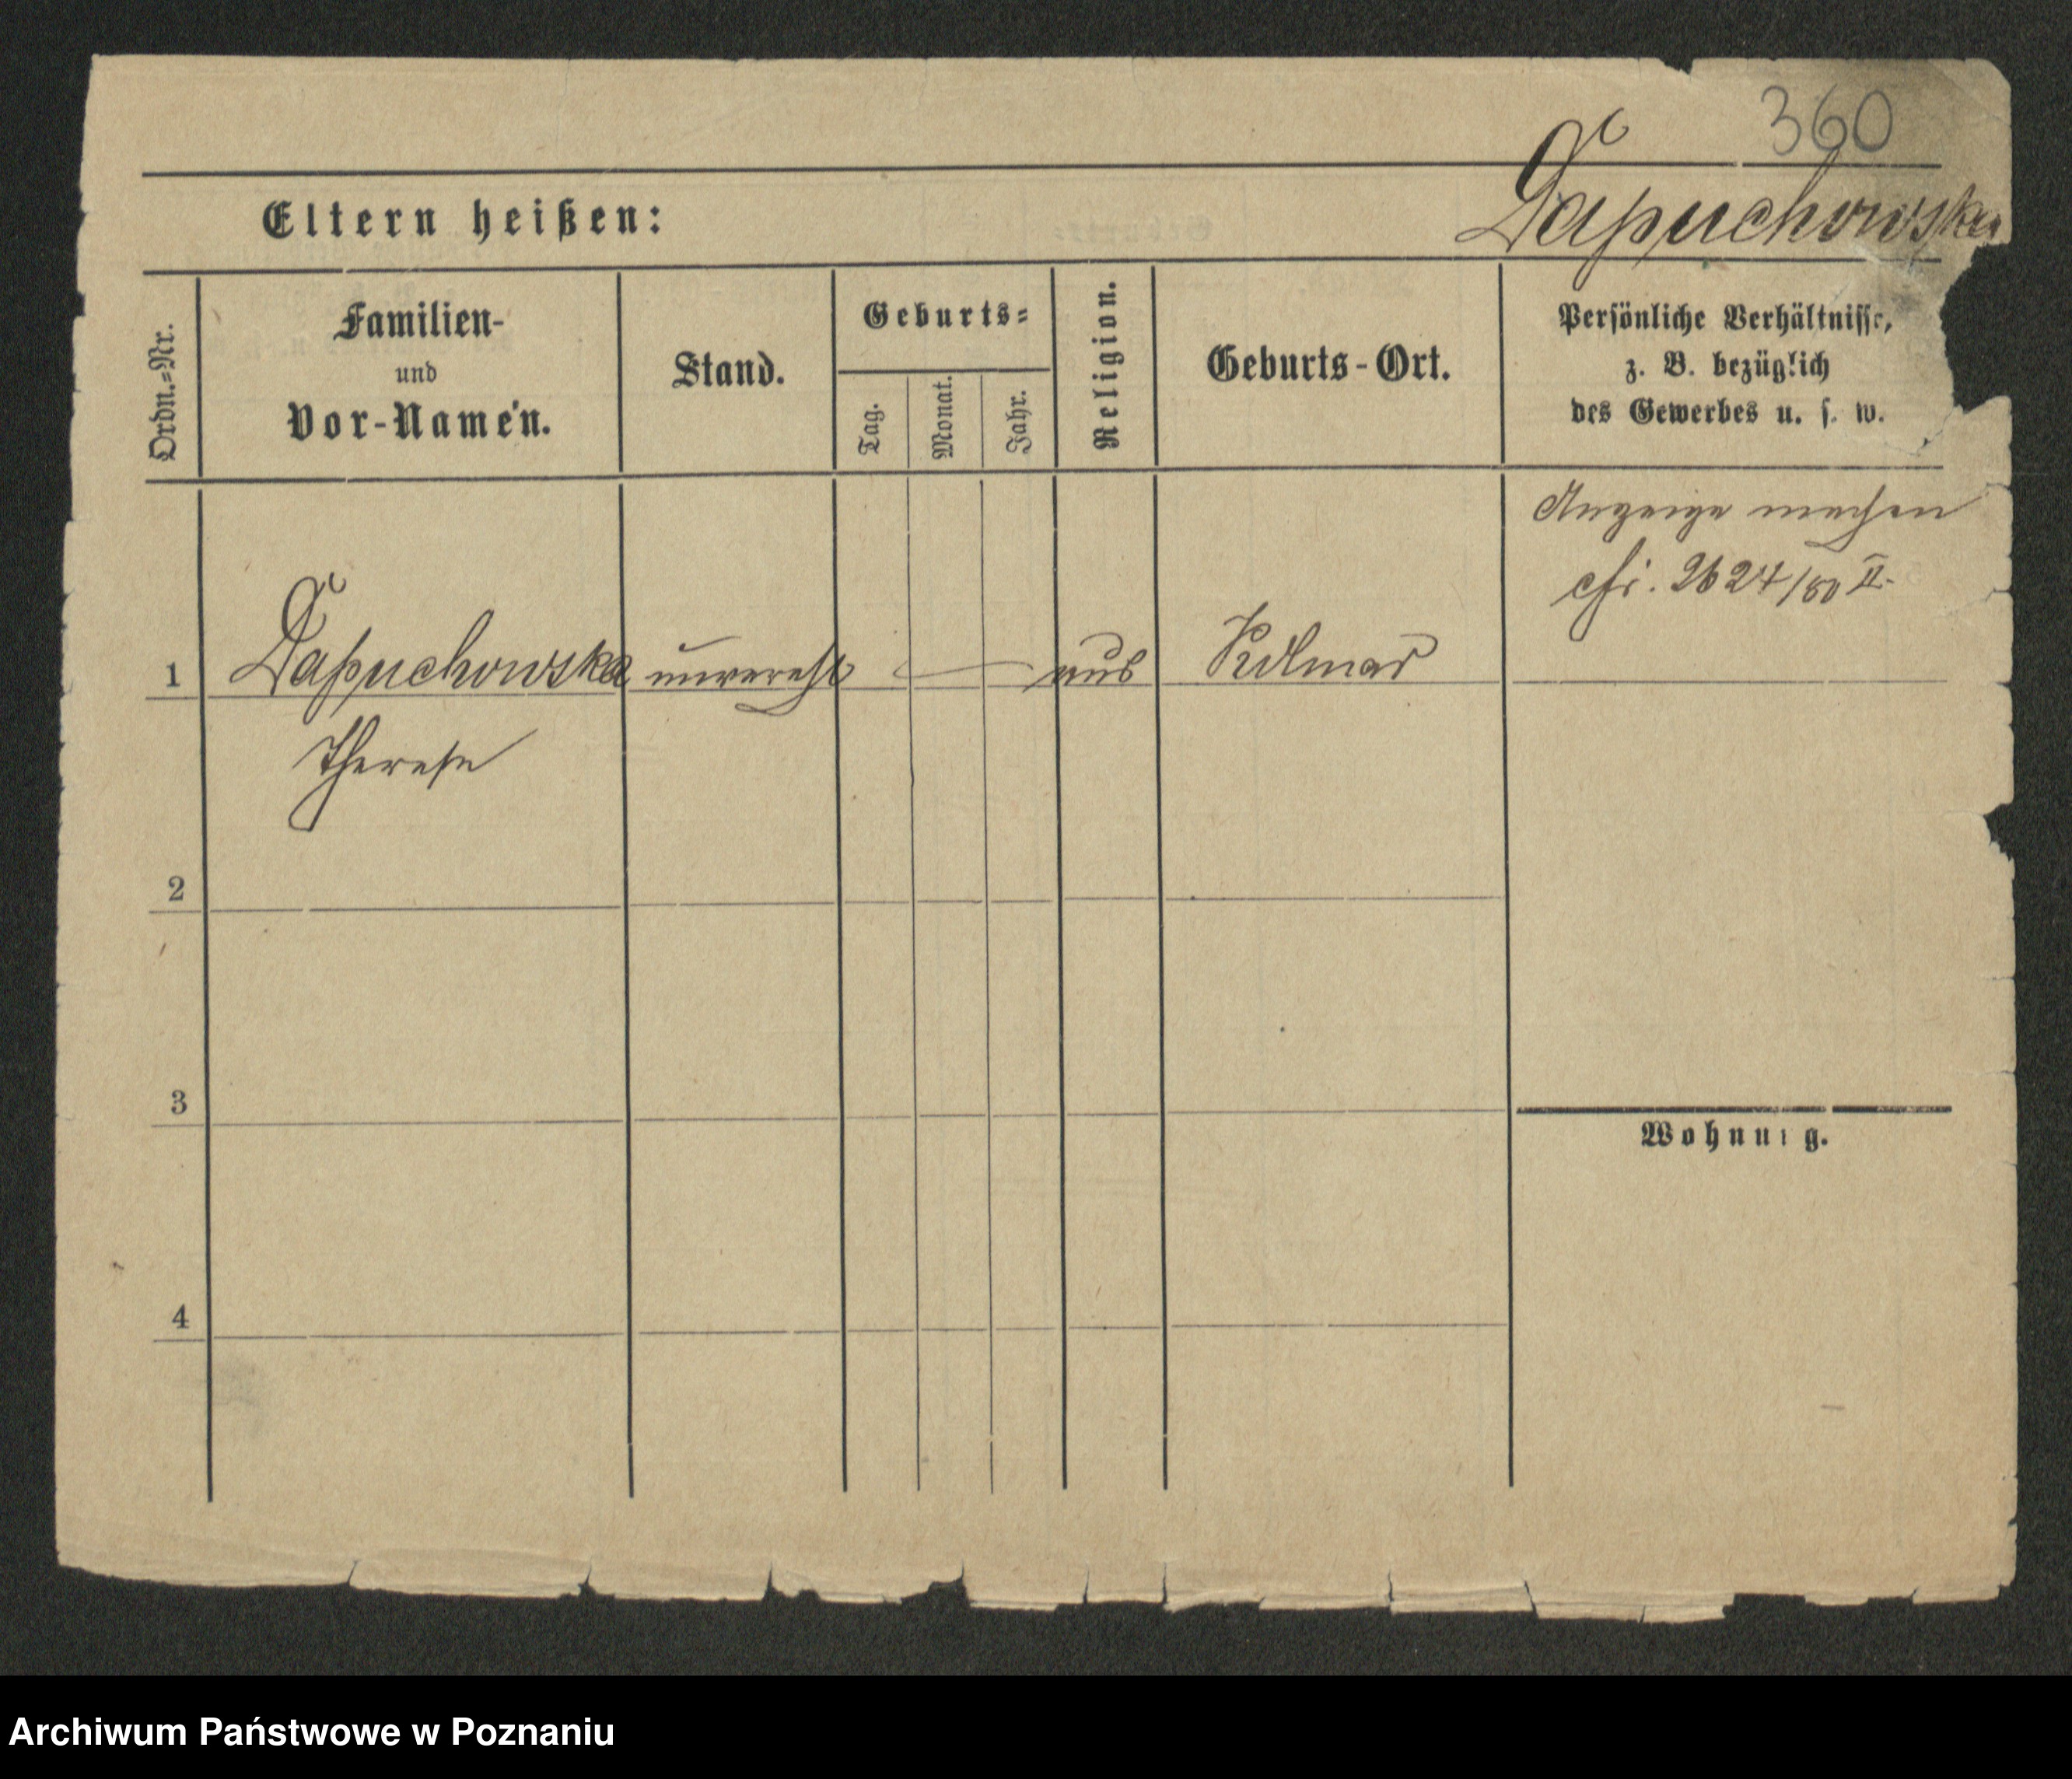 360
Łapuchowska
Eltern heißen:
Ordn.=Nr.
Familien-
und
Vor-Namen.
Stand.
Geburts=
Tag.
Monat.
Jahr.
Religion.
Geburts-Ort.
Persönliche Verhältnisse,
z. B. bezüglich
des Gewerbes u. s. w.
Anzeige machen
cfr. 2624/80 II.
1 Łapuchowska unvereh — aus Kolmar
Therese
2
3
Wohnung.
4
Archiwum Państwowe w Poznaniu